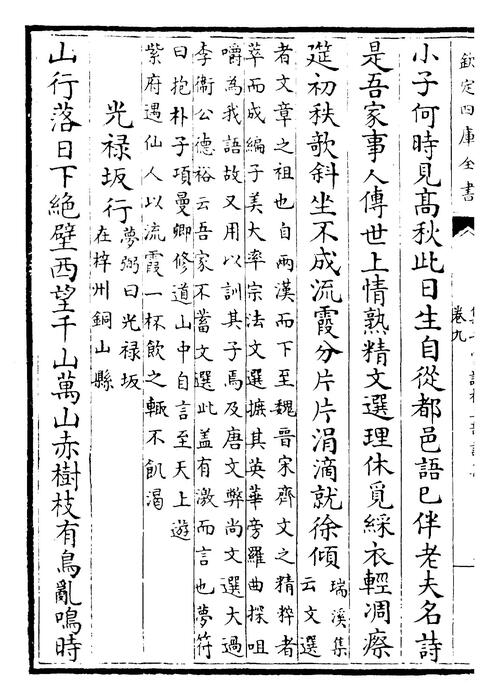 欽定四庫全書
卷九
小子何時見高秋此日生自從都邑語已伴老夫名詩
是吾家事人傳世上情熟精文選理休覓綵衣輕凋瘵
筵初秩歌斜坐不成流霞分片片涓滴就徐傾
瑞溪集
云文選
者文章之祖也自兩漢而下至魏晉宋齊文之精粹者
萃而成編子美大率宗法文選摭其英華旁羅曲探咀
嚼為我語故又用以訓其子焉及唐文弊尚文選大過
李衞公德裕云吾家不蓄文選此盖有激而言也夢符
曰抱朴子項曼卿修道山中自言至天上遊
紫府遇仙人以流霞一杯飲之輙不飢渴
光禄坂行
夢弼曰光禄坂
在梓州銅山縣
山行落日下絶壁西望千山萬山赤樹枝有鳥亂鳴時